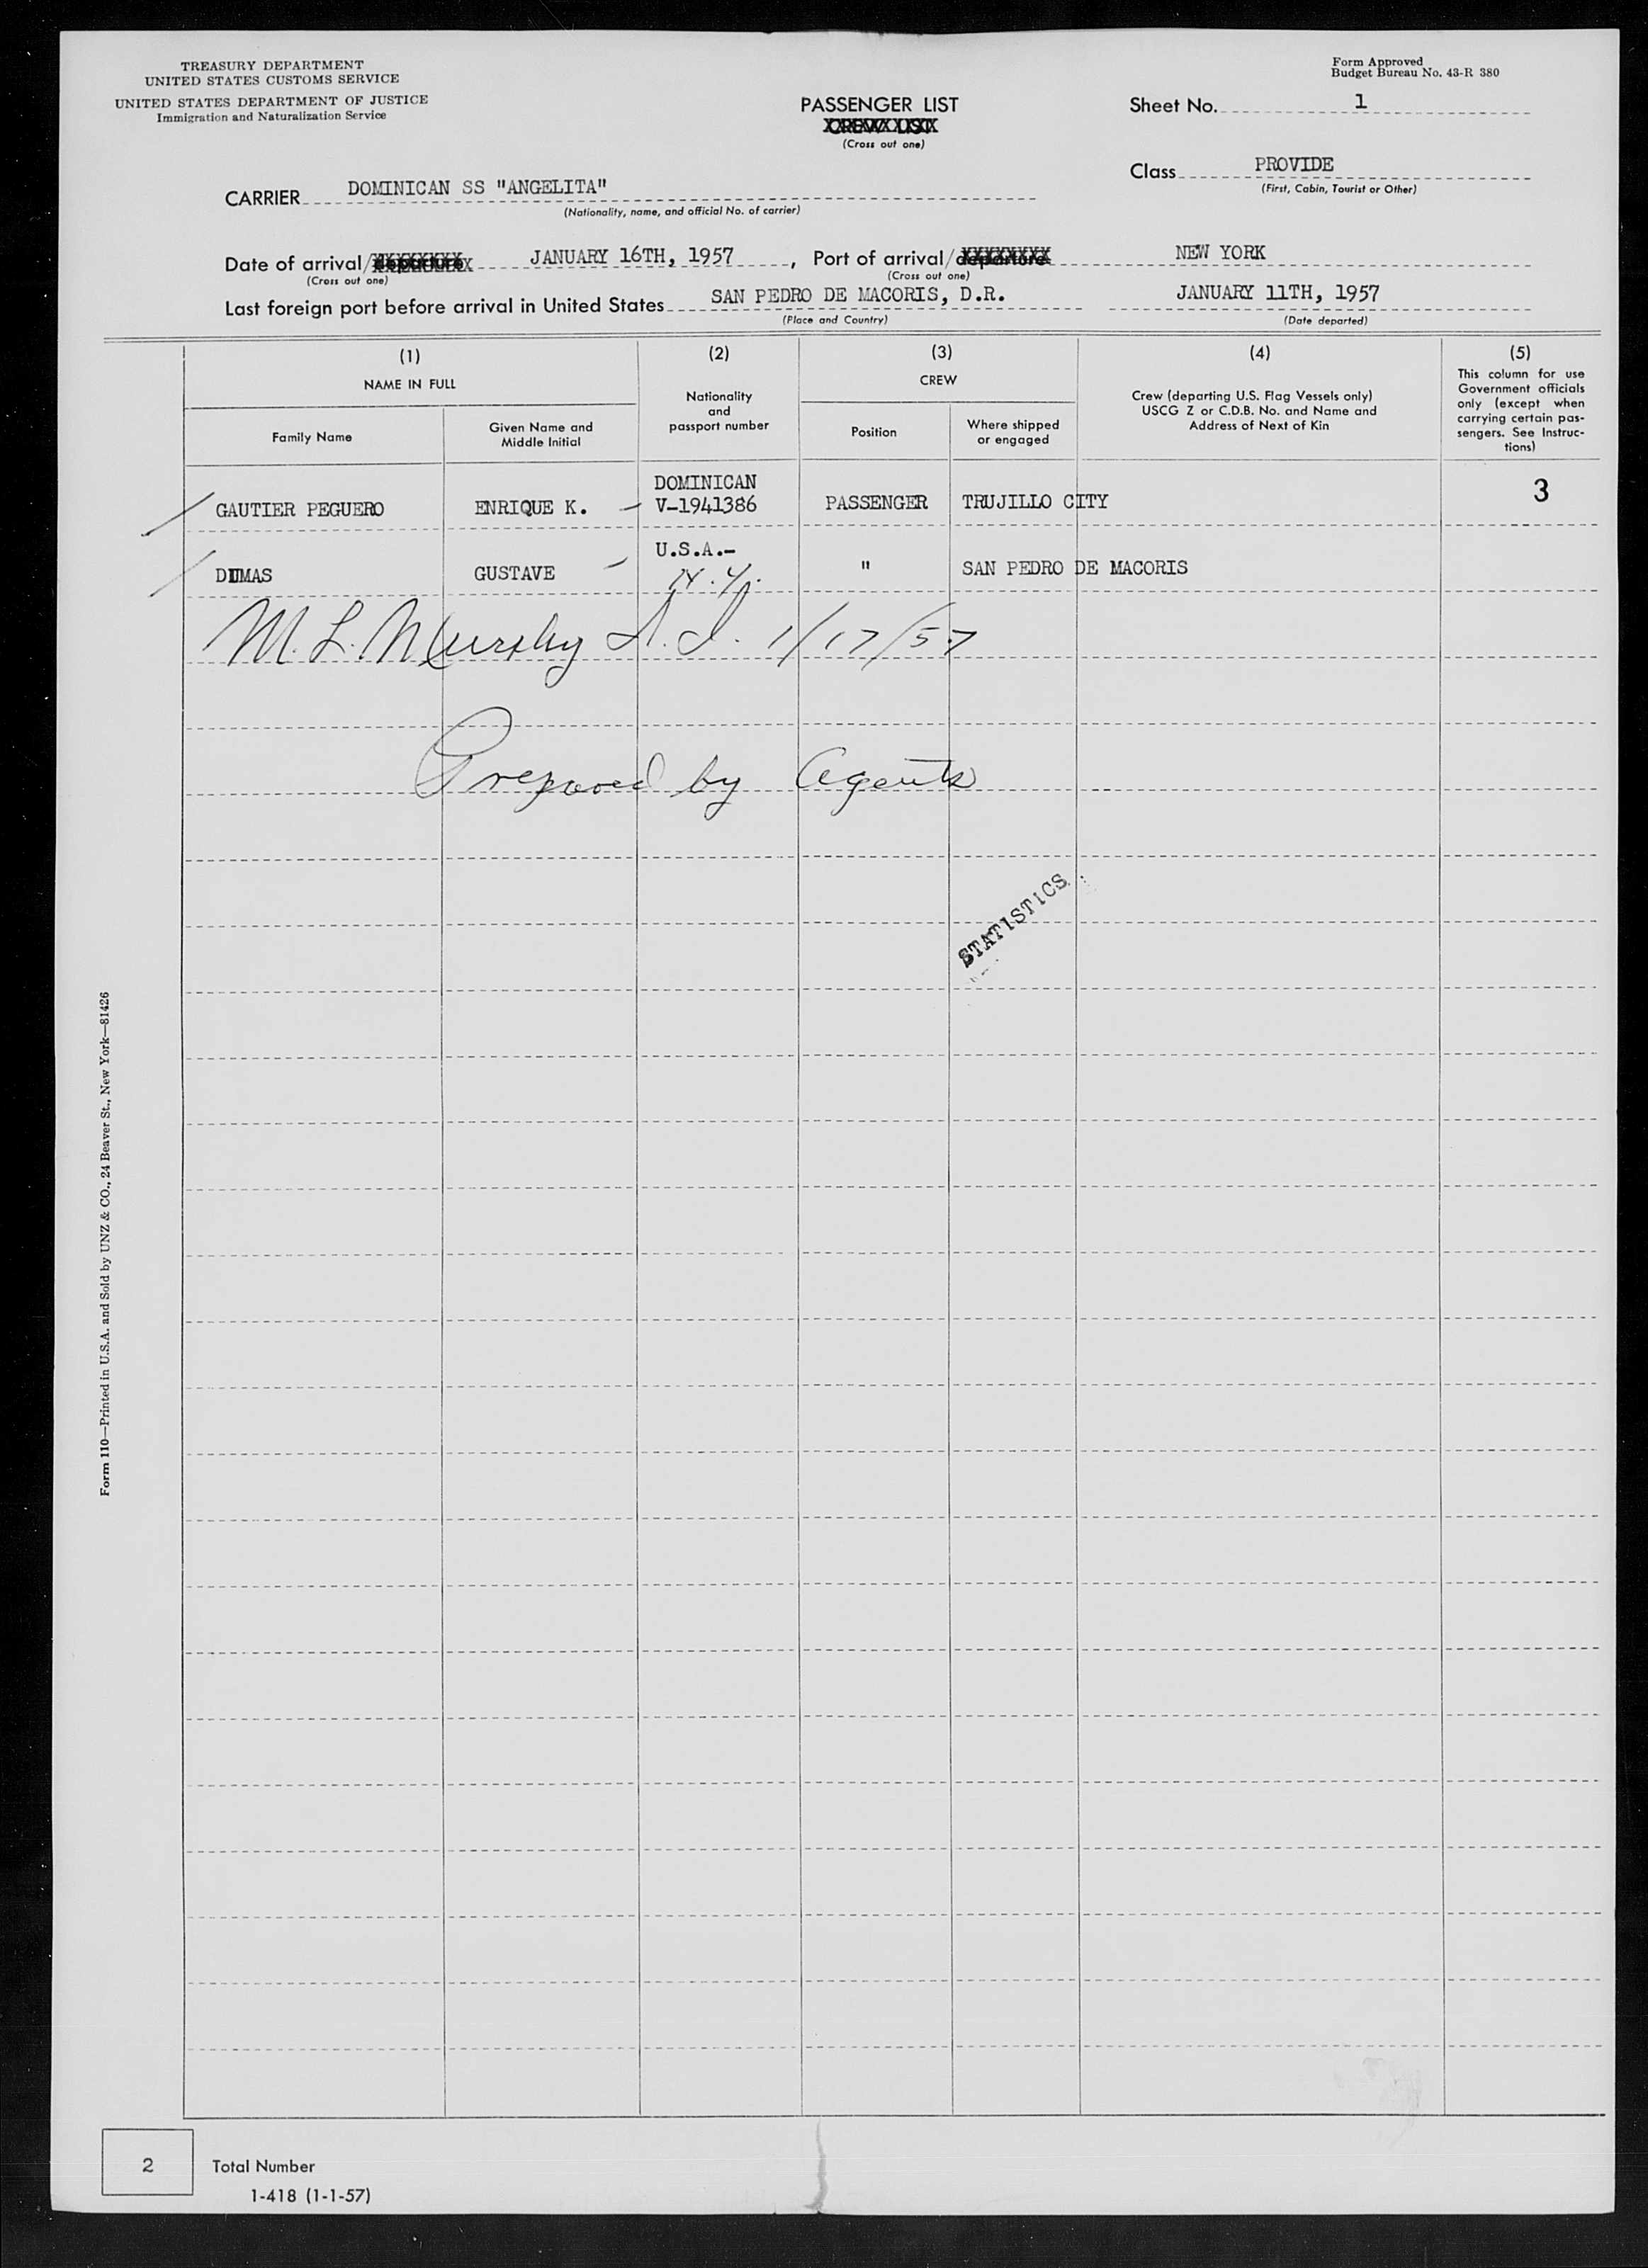 TREASURY DEPARTMENT
UNITED STATES CUSTOMS SERVICE
UNITED STATES DEPARTMENT OF JUSTICE
Immigration and Naturalization Service
Form Approved
Budget Bureau No. 43-R 380
PASSENGER LIST
CREW LIST
(Cross out one)
Sheet No. 1
Class PROVIDE
(First, Cabin, Tourist or Other)
CARRIER DOMINICAN SS "ANGELITA"
(Nationality, name, and official No. of carrier)
Date of arrival/departure JANUARY 16TH, 1957, Port of arrival/departure NEW YORK
(Cross out one) (Cross out one)
Last foreign port before arrival in United States SAN PEDRO DE MACORIS, D.R. JANUARY 11TH, 1957
(Place and Country) (Date departed)
(1) (2) (3) (4) (5)
NAME IN FULL
Family Name
Given Name and
Middle Initial
Nationality
and
passport number
CREW
Position
Where shipped
or engaged
Crew (departing U.S. Flag Vessels only)
USCG Z or C.D.B. No. and Name and
Address of Next of Kin
This column for use
Government officials
only (except when
carrying certain pas-
sengers. See Instruc-
tions)
DOMINICAN
GAUTIER PEGUERO ENRIQUE K. — V-1941386 PASSENGER TRUJILLO CITY 3
U.S.A.-
DUMAS GUSTAVE N.Y. " SAN PEDRO DE MACORIS
M. L. Murphy 1/17/57
Prepared by Agents
STATISTICS
Form 110—Printed in U.S.A. and Sold by UNZ & CO., 24 Beaver St., New York—81426
2 Total Number
1-418 (1-1-57)